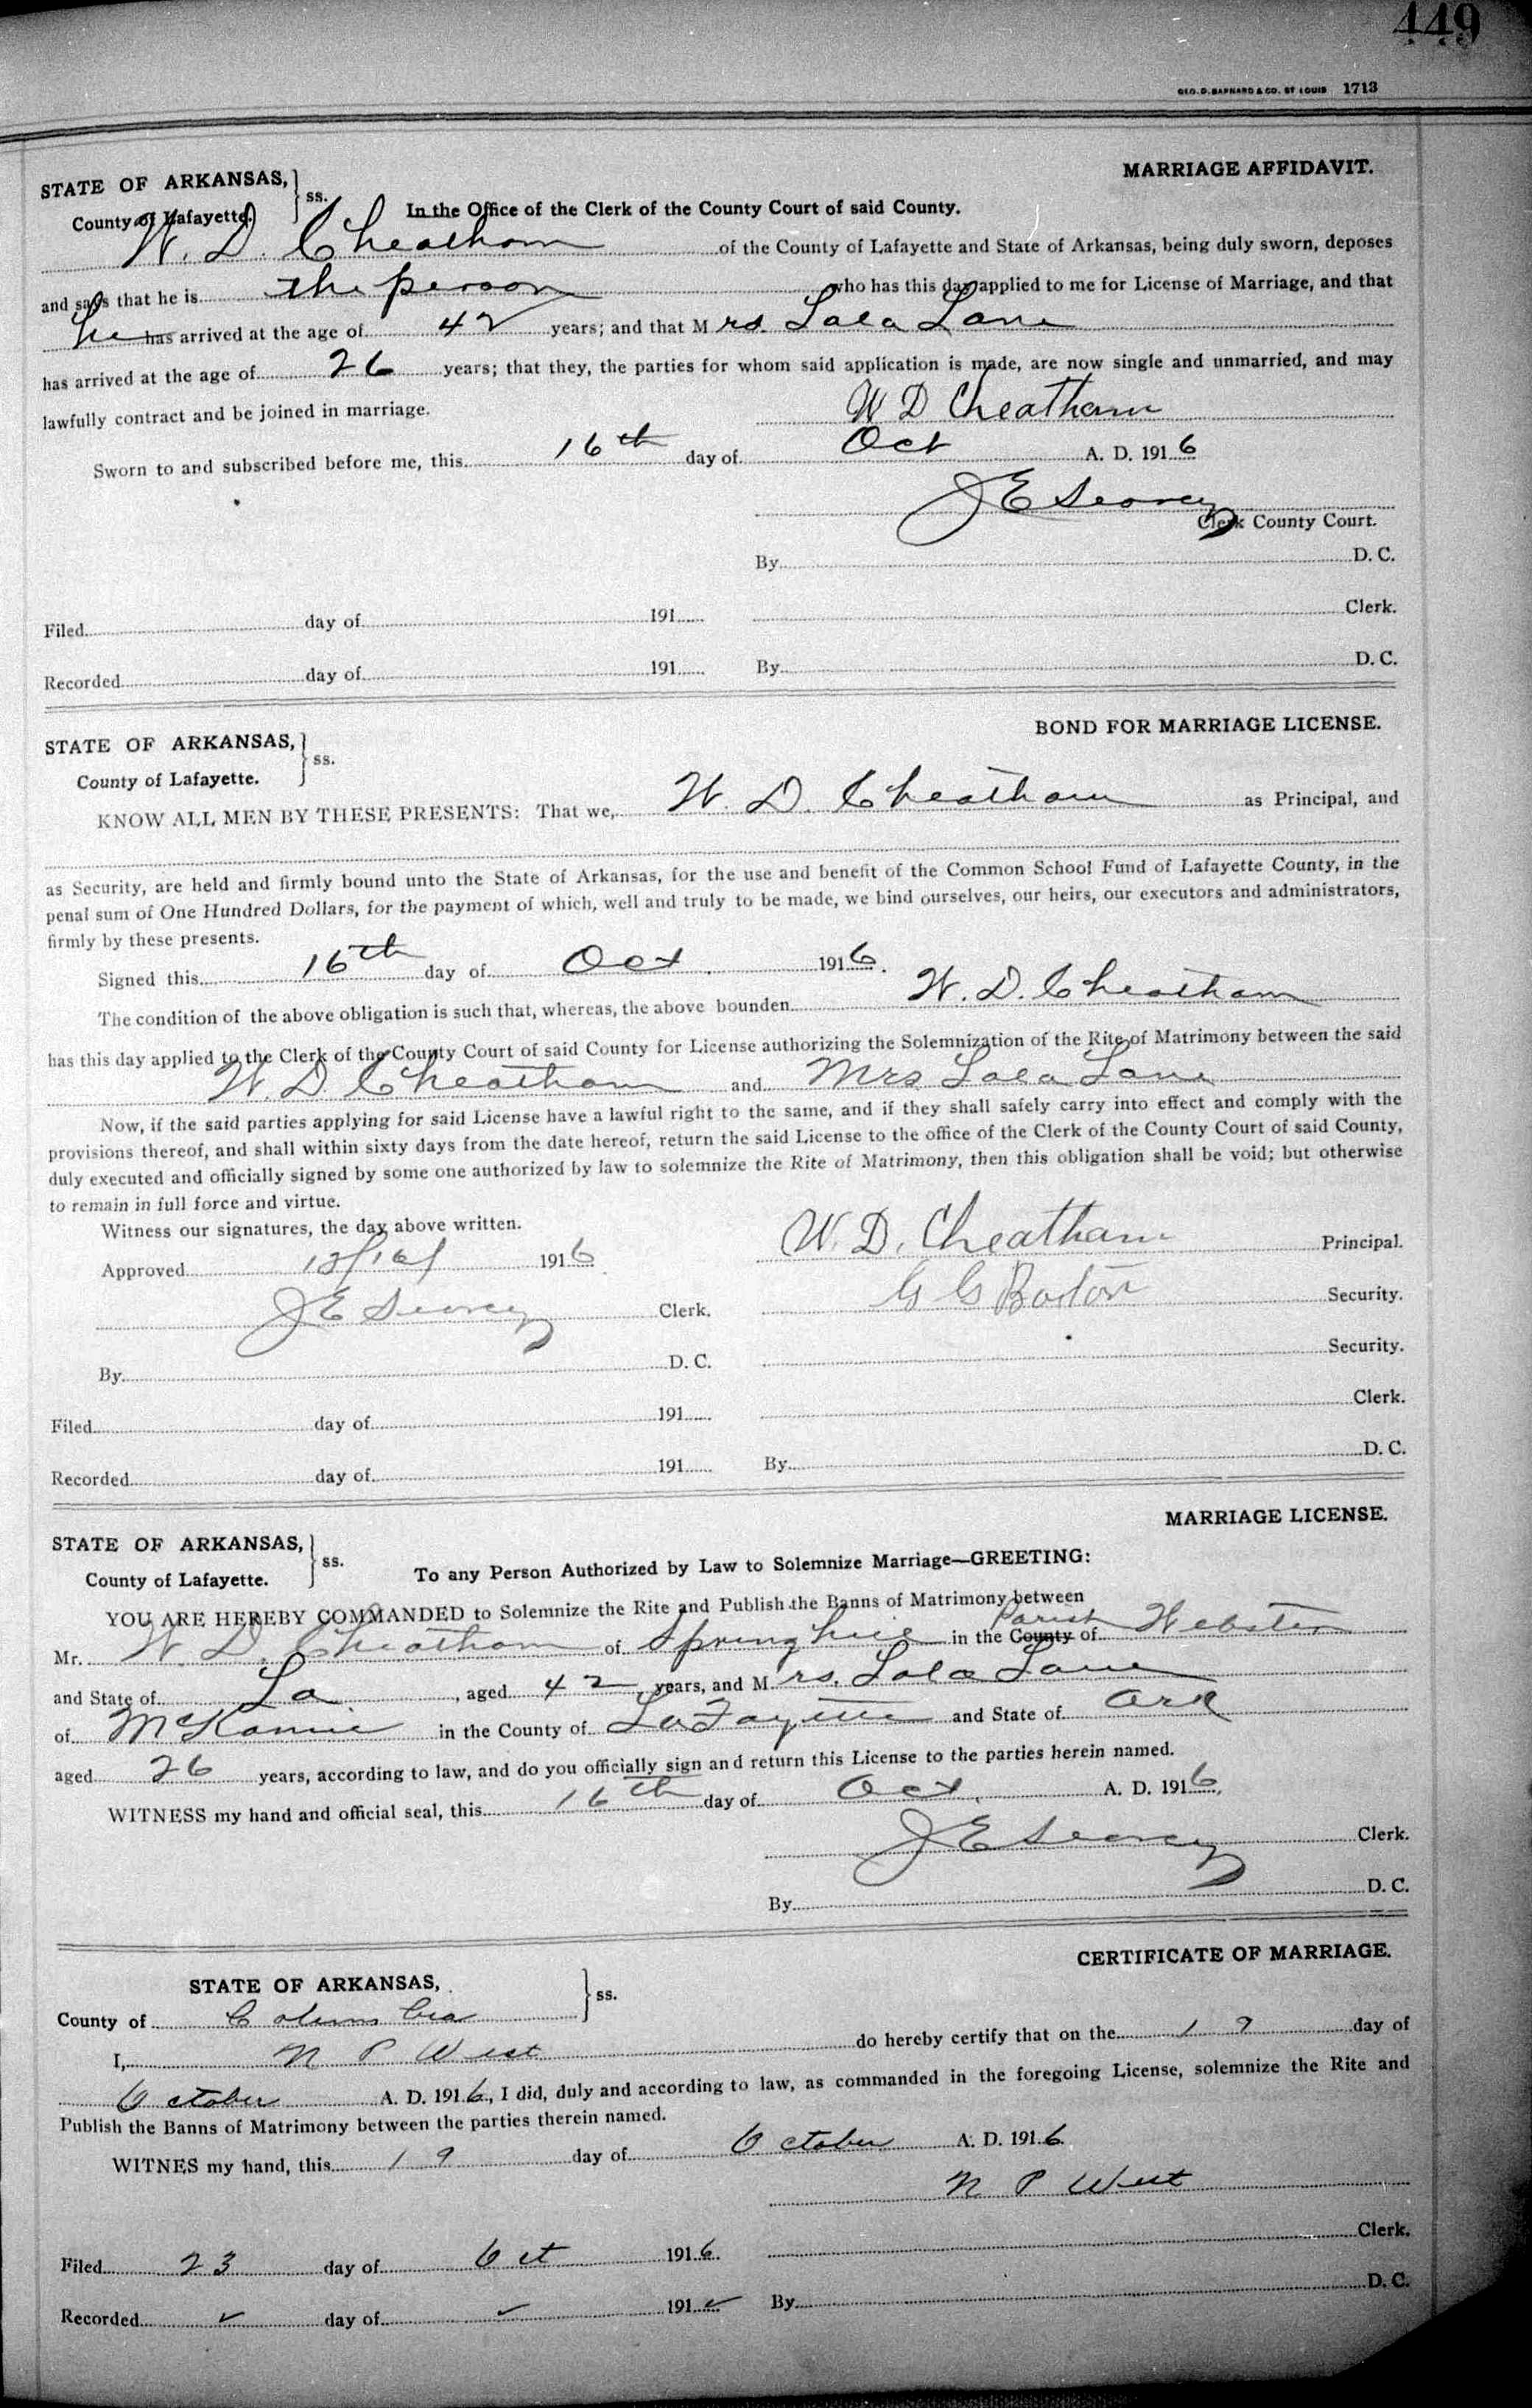 449
GEO. D. BARNARD & CO. ST LOUIS 1713
MARRIAGE AFFIDAVIT.
STATE OF ARKANSAS,
County of Lafayette. } ss. In the Office of the Clerk of the County Court of said County.
W. D. Cheatham of the County of Lafayette and State of Arkansas, being duly sworn, deposes
and says that he is the person who has this day applied to me for License of Marriage, and that
he has arrived at the age of 42 years; and that Mrs. Lola Lane
has arrived at the age of 26 years; that they, the parties for whom said application is made, are now single and unmarried, and may
lawfully contract and be joined in marriage.
W D Cheatham
Sworn to and subscribed before me, this 16th day of Oct A. D. 1916
J E Searcy
Clerk County Court.
By D. C.
Filed day of 191 Clerk.
Recorded day of 191 By D. C.
BOND FOR MARRIAGE LICENSE.
STATE OF ARKANSAS,
County of Lafayette. } ss.
KNOW ALL MEN BY THESE PRESENTS: That we, W. D. Cheatham as Principal, and
as Security, are held and firmly bound unto the State of Arkansas, for the use and benefit of the Common School Fund of Lafayette County, in the
penal sum of One Hundred Dollars, for the payment of which, well and truly to be made, we bind ourselves, our heirs, our executors and administrators,
firmly by these presents.
Signed this 16th day of Oct. 1916.
The condition of the above obligation is such that, whereas, the above bounden W. D. Cheatham
has this day applied to the Clerk of the County Court of said County for License authorizing the Solemnization of the Rite of Matrimony between the said
W. D Cheatham and Mrs Lola Lane
Now, if the said parties applying for said License have a lawful right to the same, and if they shall safely carry into effect and comply with the
provisions thereof, and shall within sixty days from the date hereof, return the said License to the office of the Clerk of the County Court of said County,
duly executed and officially signed by some one authorized by law to solemnize the Rite of Matrimony, then this obligation shall be void; but otherwise
to remain in full force and virtue.
Witness our signatures, the day above written.
W. D. Cheatham Principal.
Approved 1916
G G Security.
J E Searcy Clerk.
Security.
By D. C.
Clerk.
Filed day of 191
Recorded day of 191 By D. C.
MARRIAGE LICENSE.
STATE OF ARKANSAS,
County of Lafayette. } ss. To any Person Authorized by Law to Solemnize Marriage—GREETING:
YOU ARE HEREBY COMMANDED to Solemnize the Rite and Publish the Banns of Matrimony between
Mr. W. D. Cheatham of Springhill in the County Parish of Webster
and State of La, aged 42 years, and Mrs. Lola Lane
of McKamie in the County of LaFayette and State of Ark
aged 26 years, according to law, and do you officially sign and return this License to the parties herein named.
WITNESS my hand and official seal, this 16th day of Oct. A. D. 1916,
J E Searcy Clerk.
By D. C.
CERTIFICATE OF MARRIAGE.
STATE OF ARKANSAS,
County of Columbia } ss.
I, N P West do hereby certify that on the 19 day of
October A. D. 1916, I did, duly and according to law, as commanded in the foregoing License, solemnize the Rite and
Publish the Banns of Matrimony between the parties therein named.
WITNES my hand, this 19 day of October A. D. 1916
N P West
Clerk.
Filed 23 day of Oct 1916.
D. C.
Recorded ✓ day of ✓ 191 ✓ By